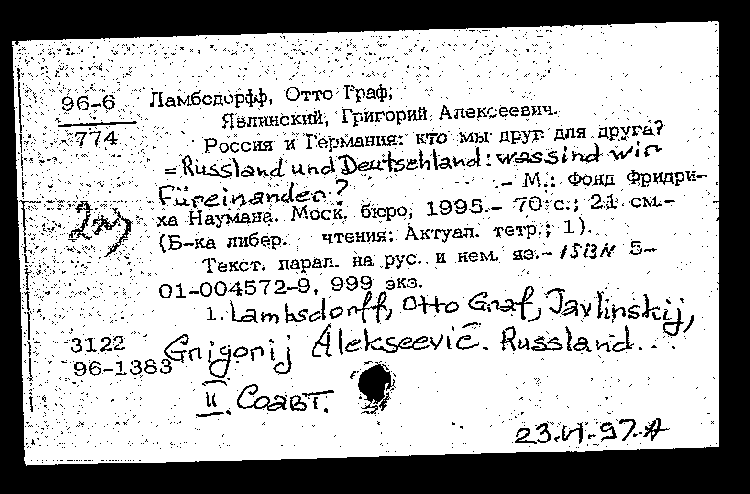 96-6 Ламбсдорфф, Отто Граф;
774 Явлинский, Григорий Алексеевич.
Россия и Германия: кто мы друг для друга?
= Russland und Deutschland: was sind wir
Füreinander?
- М.: Фонд Фридри-
ха Наумана. Моск. бюро, 1995.- 70 с.; 21 см.-
(Б-ка либер. чтения: Актуал. тетр.; 1).
Текст. парал. на рус. и нем. яз.- ISBN 5-
01-004572-9, 999 экз.
1. Lambsdorff, Otto Graf, Javlinskij,
3122 Grigorij Alekseevič. Russland...
96-1383
II. Соавт.
23.VI-97.